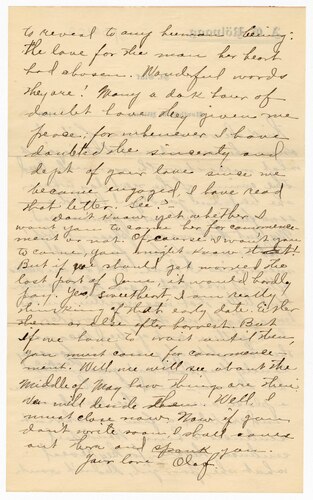 to reveal to any human being:
the love for the man her heart
had chosen. Wonderful words
they are! Many a dark hour of
doubt have they given me
perse; for whenever I have
doubted the sincerity and
dept of your love since we
became engaged, I have read
that letter. See? -
Don't know yet whether I
want you to come her for commence-
ment or not. Of course I want you
to come, you might know that!
But if we should get married the
last part of June, it would hardly
pay. Yes sweethert I am really
thinking of that early date. Either
then or else after harvest. But
if we have to wait until then,
you must come for commence-
ment. Well we will see about the
middle of May how things are then
we will decide then. Well I
must close now. Now if you
don't write soon I shall come
out here and spank you.
Your love Olaf.